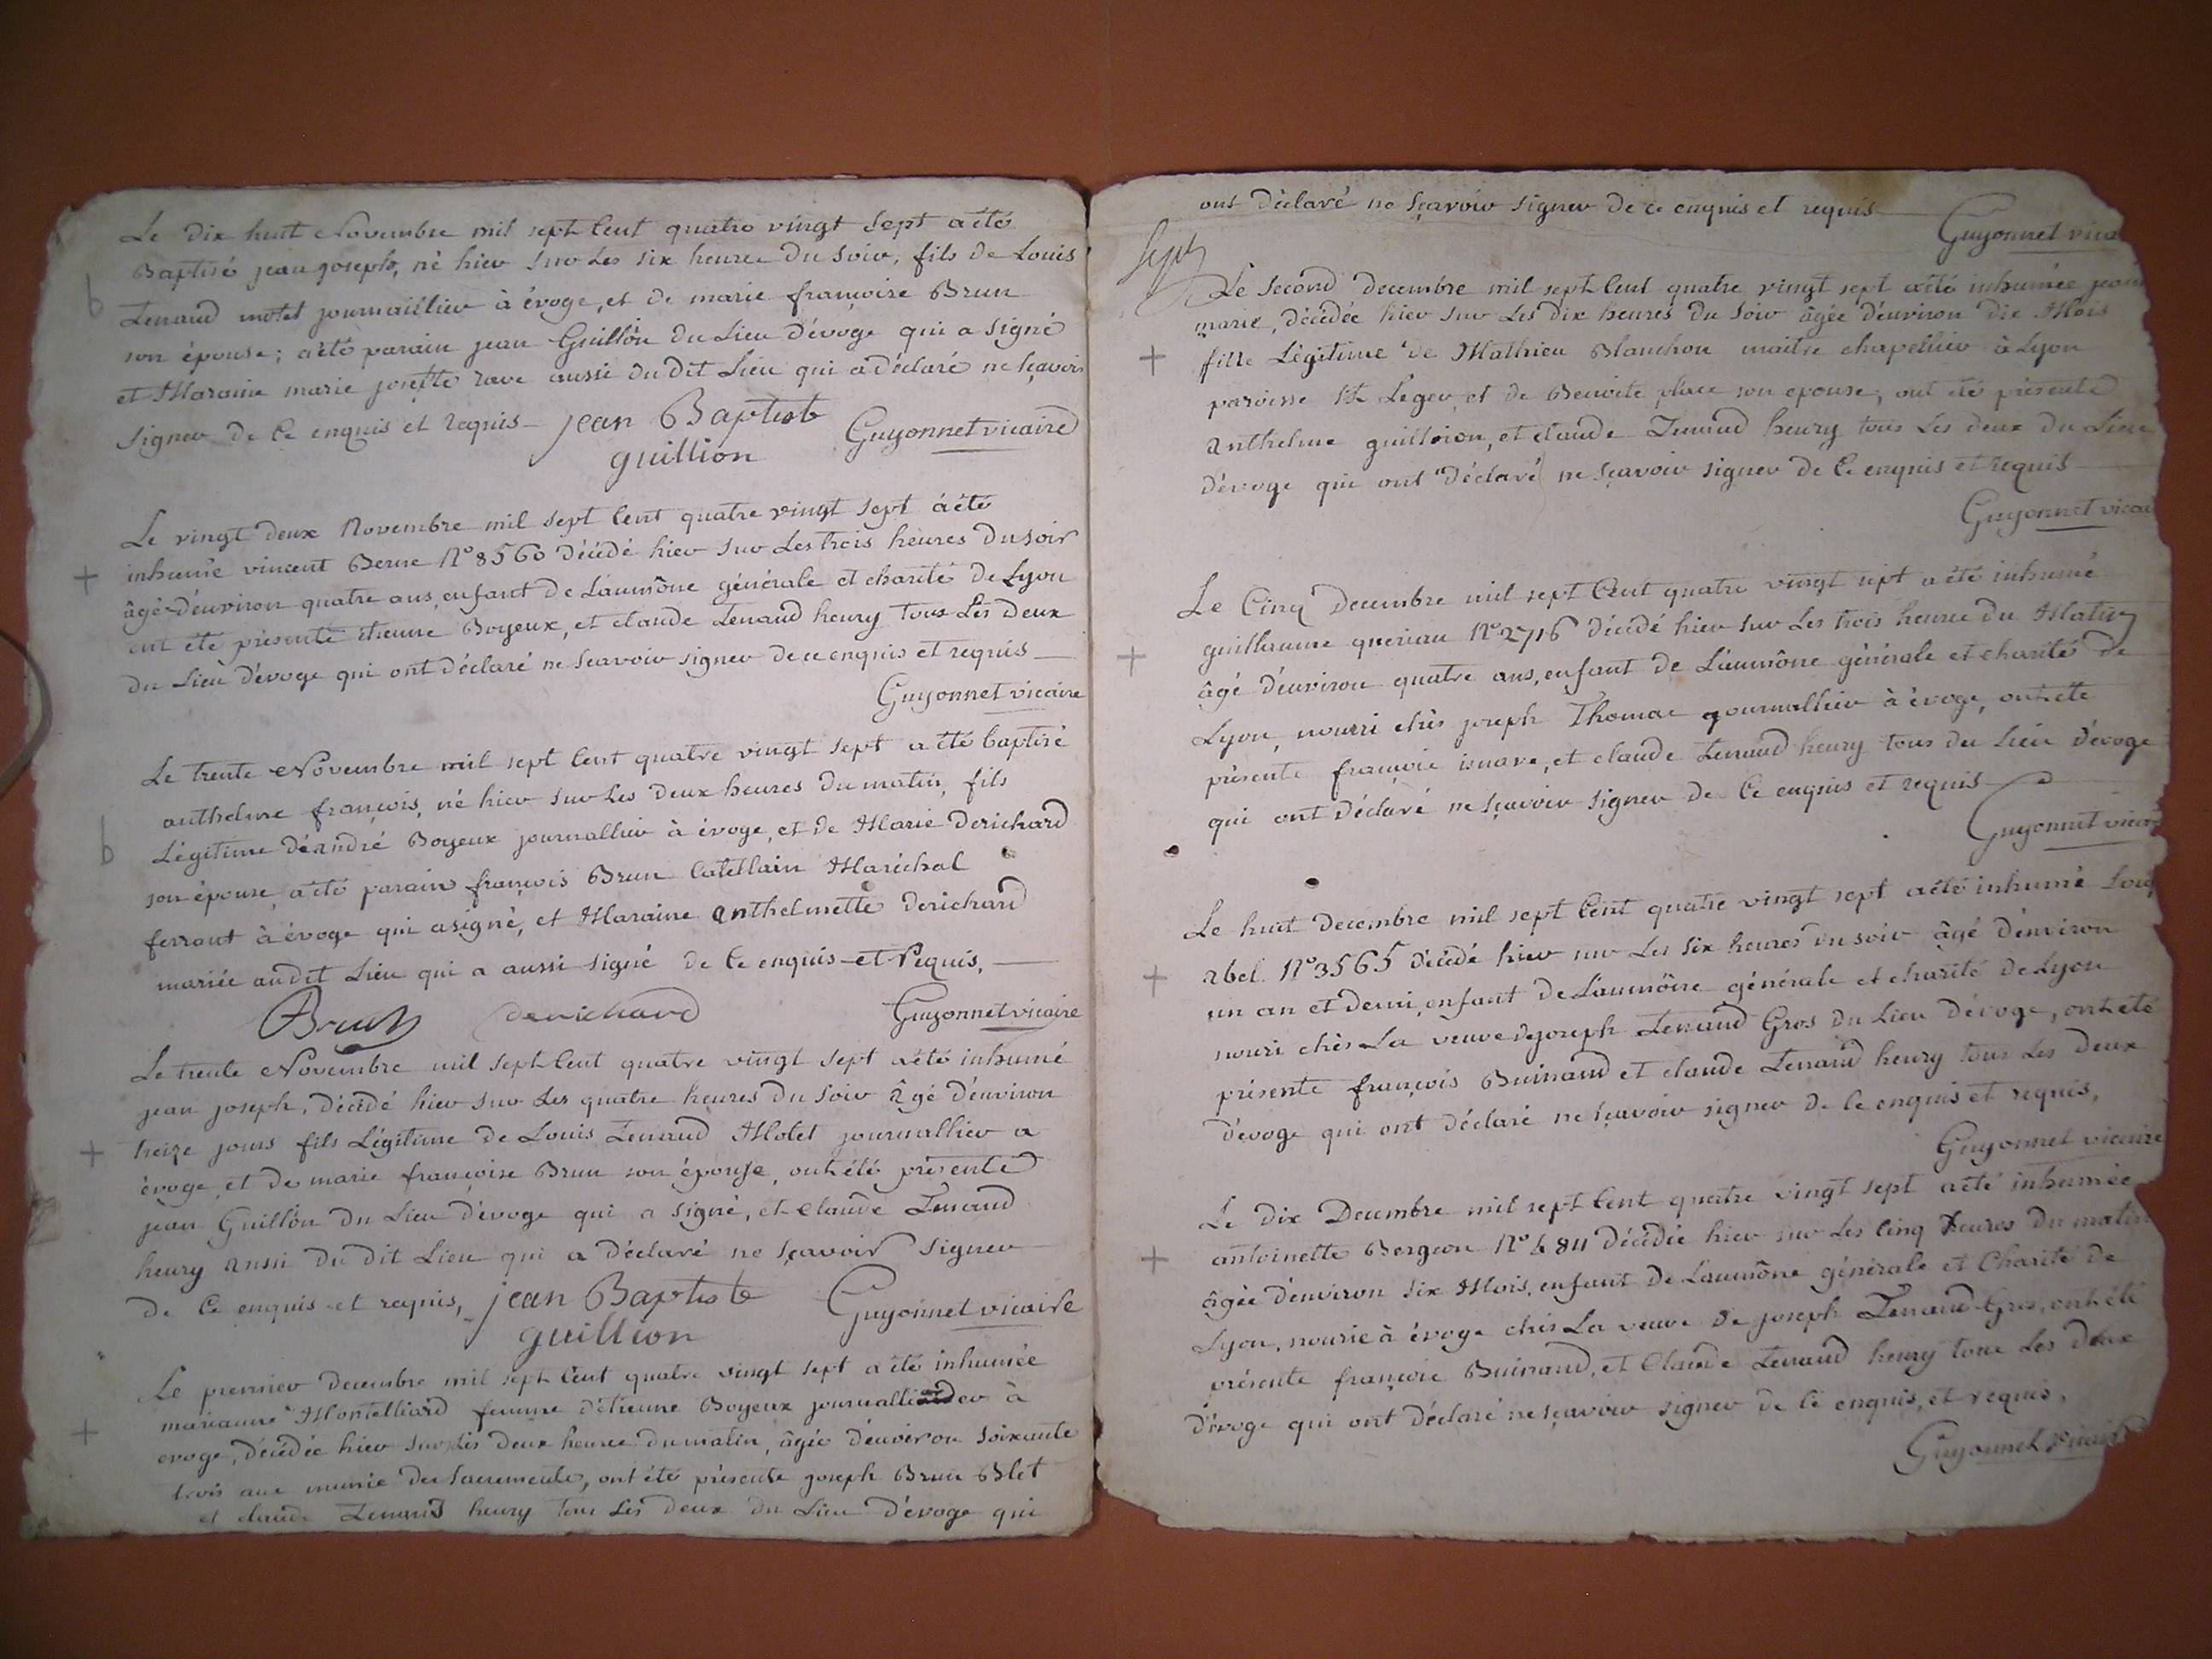 Le dix huit Novembre mil sept Cent quatre vingt Sept a été
Baptisé jean joseph, né hier sur Les six heures Du Soir, fils de Louis
b
Lenaud motet journaillier à évoge, et de marie françoise Brun
son épouse; a été parain jean Guillon du Lieu d'évoge qui a signé
et Maraine marie josephte rave aussi du dit Lieu qui a déclaré ne sçavoir
signer de Ce enquis et requis - jean Baptiste Guyonnet vicaire
guillion
Le vingt deux Novembre mil sept Cent quatre vingt Sept a été
+ inhumé vincent Berne N° 8560 Décédé hier sur Les trois heures Du soir
âgé d'environ quatre ans, enfant de L'aumône générale et charité de Lyon
ont été présents étienne Boyeux, et claude Lenaud henry tous Les deux
du Lieu d'évoge qui ont déclaré ne sçavoir signer de ce enquis et requis
Guyonnet vicaire
Le trente Novembre mil sept Cent quatre vingt sept a été baptisé
anthelme françois, né hier sur Les deux heures du matin, fils
b Légitime d'éandré Boyeux journallier à évoge, et de Marie derichard
son épouse, a été parain françois Brun Catellain Maréchal
ferrant à évoge qui a signé, et Maraine anthelmette derichard
mariée audit Lieu qui a aussi signé de Ce enquis et Requis,
Brun derichard Guyonnet vicaire
Le trente Novembre mil sept Cent quatre vingt sept a été inhumé
jean joseph, Décédé hier sur Les quatre heures Du Soir âgé d'environ
+ treize jours fils Légitime de Louis Lenaud Motet journallier a
évoge, et de marie françoise Brun son épouse, ont été présents
jean Guillon du Lieu d'évoge qui a signé, et claude Lenaud
henry aussi du dit Lieu qui a déclaré ne sçavoir signer
de Ce enquis et requis, jean Baptiste Guyonnet vicaire
guillion
Le premier decembre mil sept Cent quatre vingt sept a été inhumée
+ marianne Montelliard femme d'étienne Boyeux à
evoge, décédée hier sur Les deux heures du matin, âgée d'environ soixante
trois ans munie des Sacrements, ont été présents joseph Brun Blet
et claude Lenaud henry tous Les deux du Lieu d'évoge qui
ont déclaré ne sçavoir signer de ce enquis et requis
Guyonnet
Le second decembre mil sept Cent quatre vingt sept a été inhumée
marie, décédée hier sur Les dix heures du soir âgée d'environ dix Mois
+ fille Légitime de Mathieu Blanchon maitre chapellier à Lyon
paroisse St Leger, et de Benoite place son epouse, ont été présents
anthelme guilloion, et claude Lenaud henry tous Les deux du Lieu
d'évoge qui ont déclaré ne sçavoir signer de Ce enquis et requis
Guyonnet
Le Cinq decembre mil sept Cent quatre vingt sept a été inhumé
guillaume queriau N° 2716 décédé hier sur Les trois heures du Matin
+ âgé d'environ quatre ans, enfant de L'aumône générale et charité de
Lyon, nourri chès joseph Thomas journallier à évoge, ont été
présents françois isnare, et claude Lenaud henry tous du Lieu d'évoge
qui ont déclaré ne sçavoir signer de Ce enquis et requis
Guyonnet
Le huit decembre mil sept Cent quatre vingt sept a été inhumé
+ abel. N° 3565 décédé hier sur Les six heures du soir âgé d'environ
un an et demi, enfant de L'aumône générale et charité de Lyon
nouri chès La veuve de joseph Lenaud Gros du Lieu d'évoge, ont été
présents françois Buinaud et claude Lenaud henry tous Les deux
d'évoge qui ont déclaré ne sçavoir signer de Ce enquis et requis,
Guyonnet vicaire
Le dix Decembre mil sept Cent quatre vingt sept a été inhumée
+ antoinette Bergeon décédée hier sur Les Cinq heures du matin
âgée d'environ six Mois, enfant de L'aumône générale et Charité de
Lyon, nourie à évoge chès La veuve de joseph Lenaud Gros, ont été
présents françois Buinaud, et Claude Lenaud henry tous Les deux
d'évoge qui ont déclaré ne sçavoir signer de Ce enquis, et requis,
Guyonnet vicaire